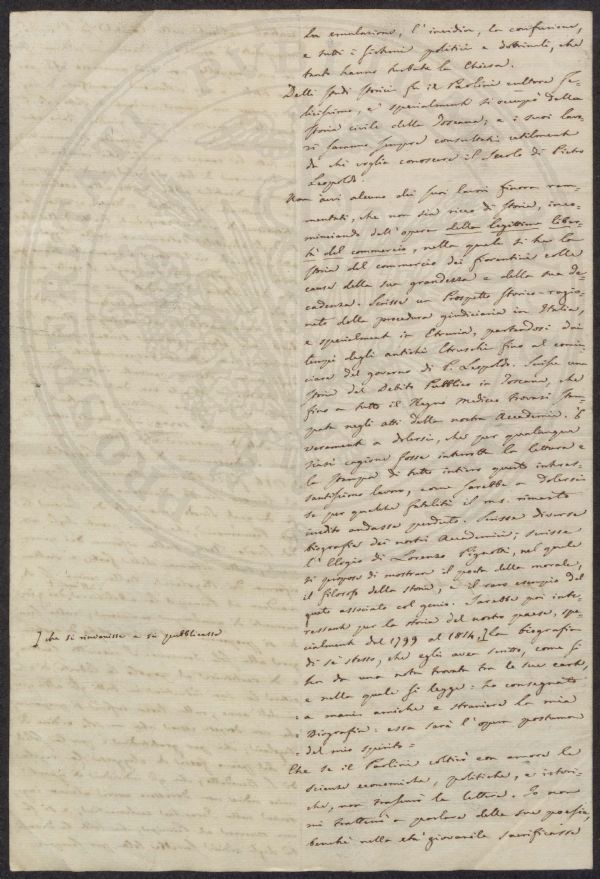 la emulazione, l'invidia, la confusione,
e tutti i sistemi politici e dottrinali, che
tanto hanno turbato la Chiesa.
Delli studi storici fu il Paolini cultore fe-
licissimo, e specialmente si occupò della
storia civile della Toscana; e i suoi lavo-
ri saranno sempre consultati utilmente
da chi voglia conoscere il Secolo di Pietro
Leopoldo.
Non avvi alcuno dei suoi lavori finora ram-
mentati, che non sia ricco di storia, inco-
minciando dall'opera della legittima liber-
tà del commercio, nella quale si ha la
storia del commercio dei fiorentini colle
cause della sua grandezza e della sua de-
cadenza. Scrisse un Prospetto storico-ragio-
nato della procedura giudiciaria in Italia,
e specialment in Etruria, partendosi dai
tempi degli antichi Etruschi fino al comin-
ciare del governo di P. Leopoldo. Scrisse una
storia del Debito Pubblico in Toscana, che
fino a tutto il Regno mediceo trovasi stam-
pata negli atti della nostra Accademia. È
veramente a dolersi, che per qualunque
siasi cagione fosse interrotta la lettura e
la stampa di tutto intiero questo interes-
santissimo lavoro, come sarebbe a dolersi
se per qualche fatalità il ms. rimasto
inedito andasse perduto. Scrisse diverse
biografie dei nostri Accademici; scrisse
l'Elogio di Lorenzo Pignotti, nel quale
si propose di mostrare il poeta della morale,
il filosofo della storia, e il raro esempio del
gusto associato col genio. Sarebbe poi inte-
ressante per la storia del nostro paese, spe-
cialmente dal 1799 al 1814, ] la biografia
] che si rinvenisse e si pubblicasse
di se stesso, che egli avea scritto, come si
ha da una nota trovata tra le sue carte,
e nella quale si legge = ho consegnato
= a mani amiche e straniere la mia
= Biografia: essa sarà l'opera postuma
= del mio spirito =
Che se il Paolini coltivò con amore le
scienze economiche, politiche, e istori-
che, non trascurò le lettere. Io non
mi tratterrò a parlare delle sue poesie,
benchè nella età giovanile sacrificasse